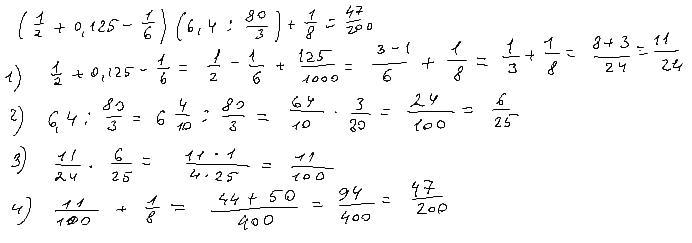 (1/2 + 0,125 - 1/6) (6,4 : 80/3) + 1/8 = 47/200
1) 1/2 + 0,125 - 1/6 = 1/2 - 1/6 + 125/1000 = 3-1/6 + 1/8 = 1/3 + 1/8 = 8+3/24 = 11/24
2) 6,4 : 80/3 = 6 4/10 : 80/3 = 64/10 · 3/80 = 24/100 = 6/25
3) 11/24 · 6/25 = 11·1/4·25 = 11/100
4) 11/100 + 1/8 = 44+50/400 = 94/400 = 47/200